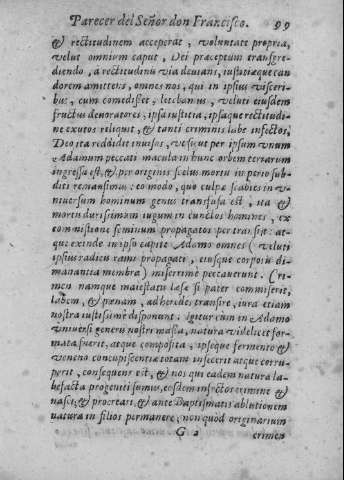 Parecer del Señor don Francisco. 99
& rectitudinem acceperat, voluntate propria,
velut omnium caput, Dei præceptum transgre-
diendo, a rectitudinis via deuians, iustitiæque can
dorem amittens, omnes nos, qui in ipsius visceri-
bus, cum comedisset, latebamus, veluti eiusdem
fructus deuoratores, ipsa iustitia, ipsaque rectitudi-
ne exutos reliquit, & tanti criminis labe infectos,
Deo ita reddidit inuisos, vt sicut per ipsum vnum
Adamum peccati macula in hunc orbem terrarum
ingressa est, & per originis scelus mortis imperio sub-
diti remansimus: eo modo, quo culpæ scabies in v-
niuersum hominum genus transfusa est, ita &
mortis durissimum iugum in cunctos homines, ex
commistione seminum propagatos pertransiit: at-
que exinde in ipso capite Adamo omnes (veluti
ipsius radicis rami propagati, eiusque corporis di-
manantia membra) miserrime peccauerunt. Cri-
men namque maiestatis læsæ si pater commiserit,
labem, & pœnam, ad heredes transire, iura etiam
nostra iustissime disponunt. Igitur cum in Adamo
vniuersi generis nostri massa, natura videlicet for-
mata fuerit, atque composita, ipseque fermento &
veneno concupiscentiæ totam infecerit atque corru-
perit, consequens est, & nos qui eadem natura la-
befacta progeniti sumus, eodem infectos crimine &
nasci, & procreari, & ante Baptismatis ablutionem
natura iræ filios permanere, non quòd originarium
G 2 crimen